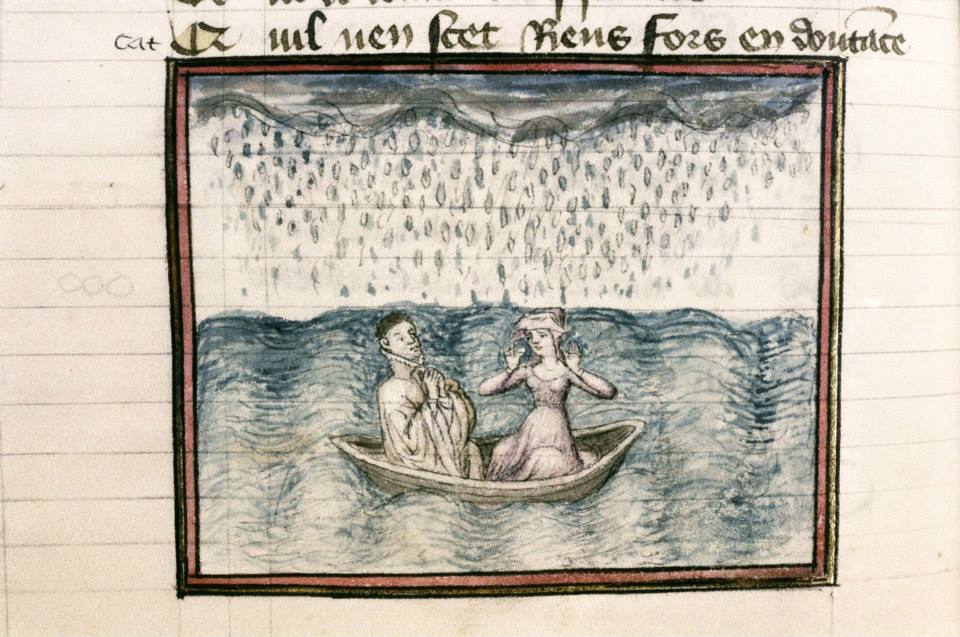 car Ce nul nen scet Riens fors en doutāce